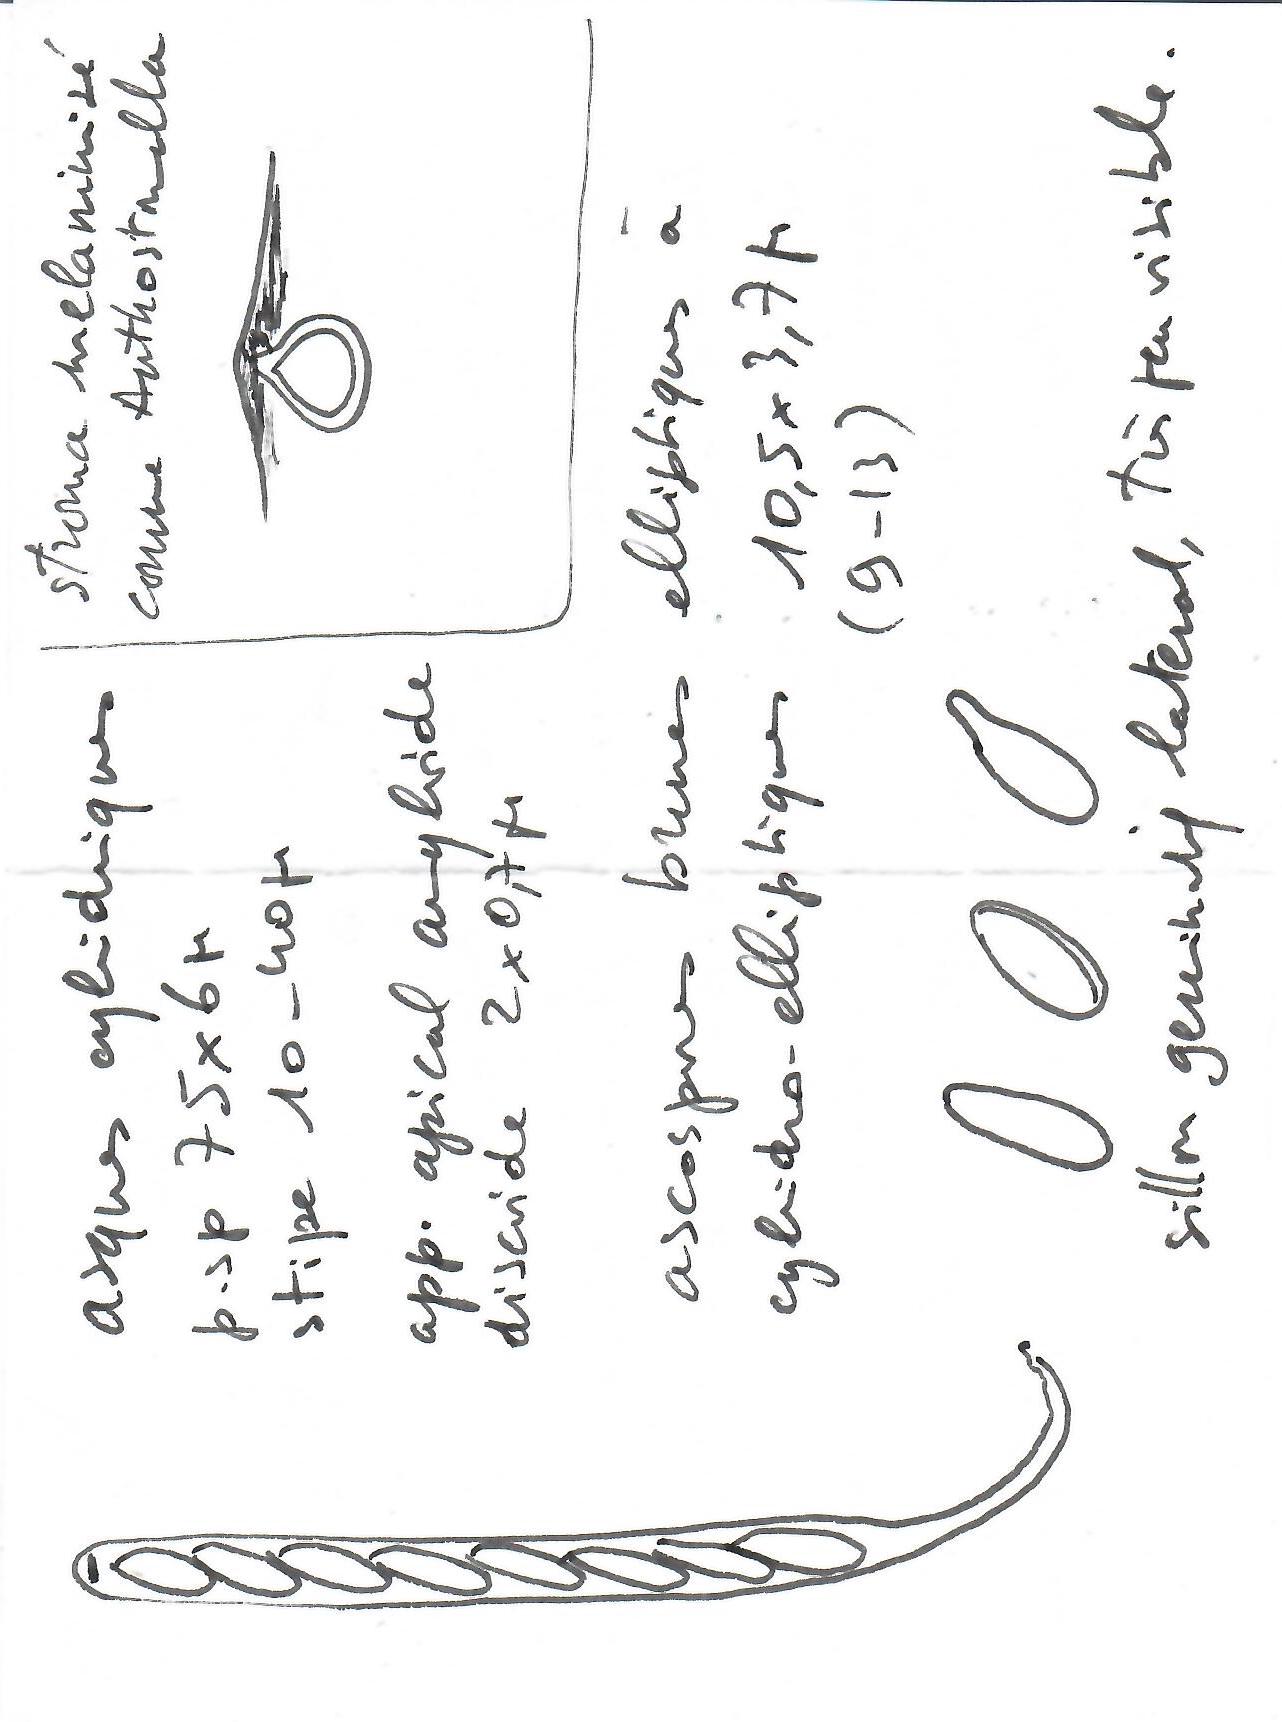 asques cylindriques
p.sp 75 x 6 µ
stipe 10-40 µ
app. apical amyloïde
discoïde 2 x 0,7 µ
stroma mélaninisé
comme Anthostomella
ascospores brunes elliptiques à
cylindro-elliptiques 10,5 x 3,7 µ
(9-13)
sillon germinatif lateral, très peu visible.